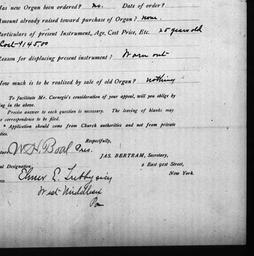 Has new Organ been ordered? no. Date of order?
Amount already raised toward purchase of Organ? none.
Particulars of present Instrument, Age, Cost Price, Etc. 25 years old
Cost $145.00
Reason for displacing present instrument? Worn out
How much is to be realised by sale of old Organ? nothing
To facilitate Mr. Carnegie's consideration of your appeal, will you oblige by
ing in the above.
Precise answer to each question is necessary. The leaving of blanks may
correspondence to be filed.
* Application should come from Church authorities and not from private
parties.
Respectfully,
W. H. Boal Pres.
JAS. BERTRAM, Secretary,
Designation,
2 East 91st Street,
New York.
Elmer E.
West Middlesex
Pa